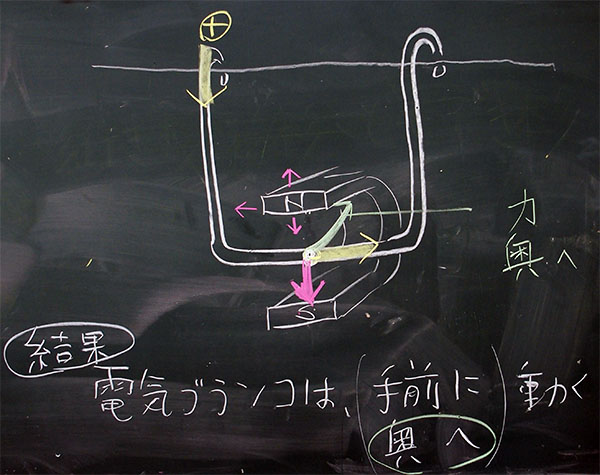 +
N
S
力
奥へ
結果
電気ブランコは、(手前に)動く
奥へ